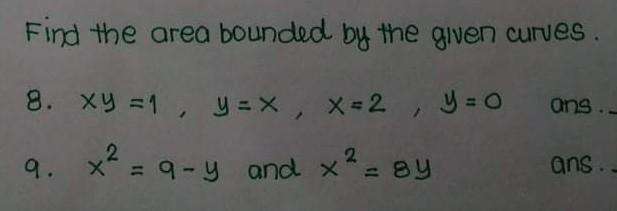 Find the area bounded by the given curves.
8. xy = 1, y = x, x = 2, y = 0 ans.
9. x² = 9 - y and x² = 8y ans.